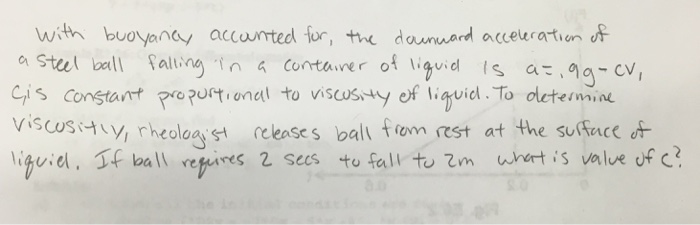 With buoyancy accounted for, the downward acceleration of
a Steel ball falling in a container of liquid is a=.9g-cv,
C, is constant proportional to viscosity of liquid. To determine
viscositiy, rheologist releases ball from rest at the surface of
liquid. If ball requires 2 secs to fall to 2m what is value of c?